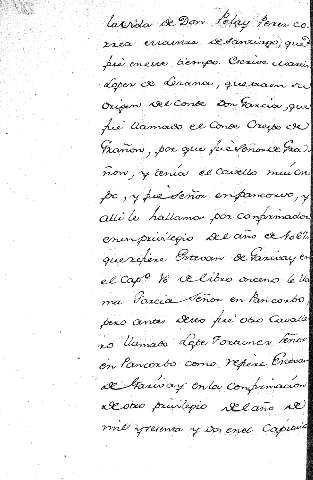 la vida de Don Pelay Perez Co
rrea maestre de Santiago, que
fué en este tiempo. Escrive Martin
Lopez de Lezana, que traen su
origen del Conde Don Garcia, que
fué llamado el Conde Crespo de
Grañon, por que fué Señor de Gra
ñon, y tenia el cavello mui cres
po, y fué Señor en pancorvo, y
alli le hallama por confirmador
en un privilegio del año de 1067
que refiere Estevan de Garivay en
el Capº 16 de libro onceno le lla
ma Garcia Señor en Pancorbo,
pero antes deste fué otro Cavalle
ro llamado Lope Fortunez Señor
en Pancorbo como refiere Estevan
de Garivay en la confirmacion
de otro privilegio del año de
mil y treinta y dos en el Capitulo